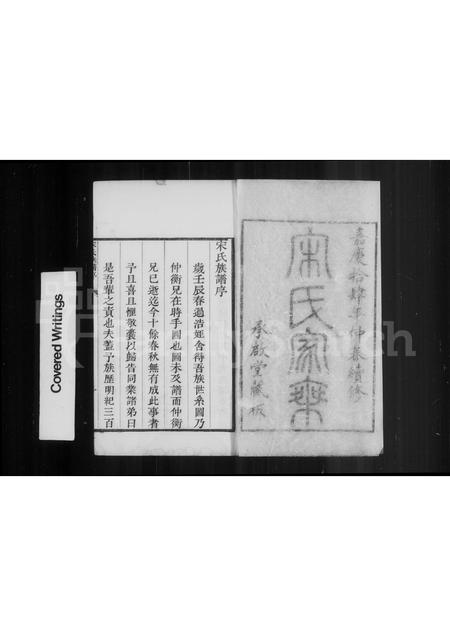 嘉慶拾肆年仲春續修
宋氏家乘
承啟堂藏板
宋氏族譜序
歲壬辰春過浩姪舍得吾族世系圖乃
仲衡兄在時手圖也圖未及譜而仲衡
兄已逝迄今十餘春秋無有成此事者
予且喜且懼敬囊以歸告同業諸弟曰
是吾輩之責也夫蓋予族歷明紀三百
宋氏族譜序
Covered Writings